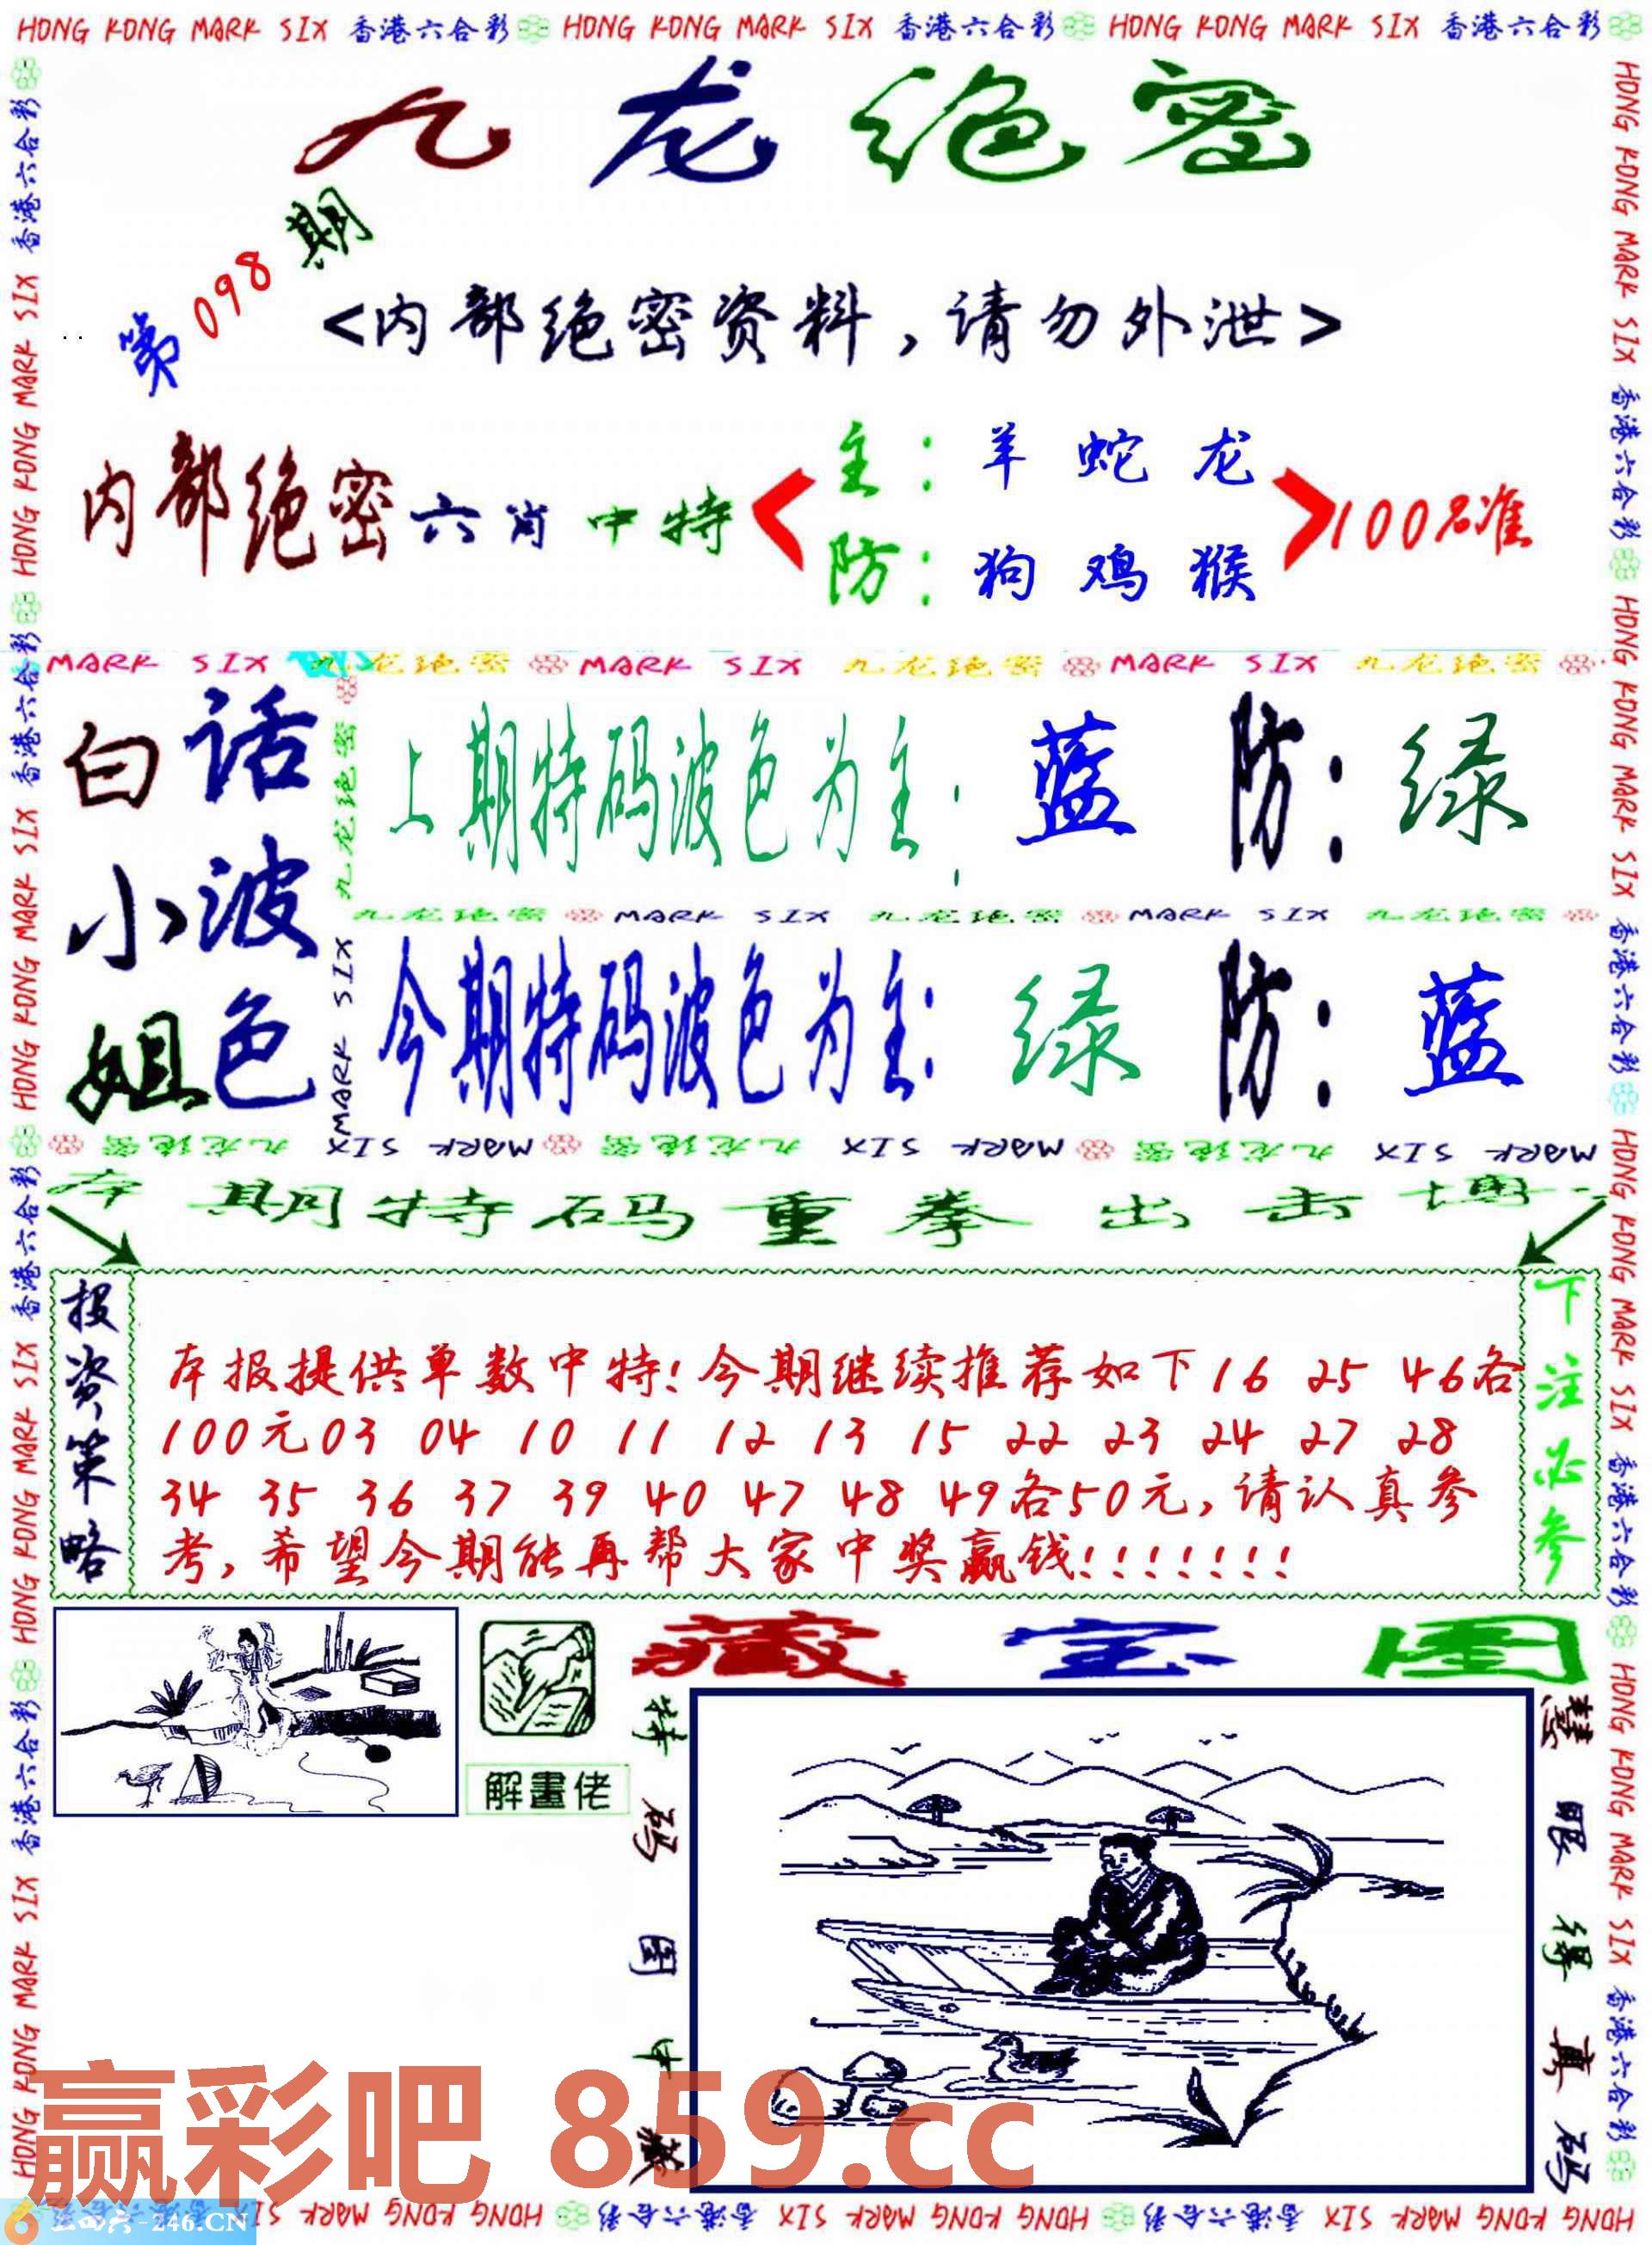 HONG KONG MARK SIX 香港六合彩 HONG KONG MARK SIX 香港六合彩 HONG KONG MARK SIX 香港六合彩
九龙绝密
第098期
<内部绝密资料，请勿外泄>
内部绝密六肖中特
主：羊 蛇 龙
防：狗 鸡 猴
100%准
MARK SIX 九龙绝密 MARK SIX 九龙绝密 MARK SIX 九龙绝密
白小姐
话波色
九龙绝密 MARK SIX
上期特码波色为主：蓝 防：绿
九龙绝密 MARK SIX 九龙绝密 MARK SIX 九龙绝密
今期特码波色为主：绿 防：蓝
九龙绝密 MARK SIX 九龙绝密 MARK SIX 九龙绝密 MARK SIX
本期特码重拳出击博
投资策略
本报提供单数中特!今期继续推荐如下16 25 46各
100元03 04 10 11 12 13 15 22 23 24 27 28
34 35 36 37 39 40 47 48 49各50元,请认真参
考,希望今期能再帮大家中奖赢钱!!!!!!!
下注必参
解畫佬
藏宝图
特码图中藏
慧眼得真码
赢彩吧 859.cc
246.CN
HONG KONG MARK SIX 香港六合彩 HONG KONG MARK SIX 香港六合彩 HONG KONG MARK SIX